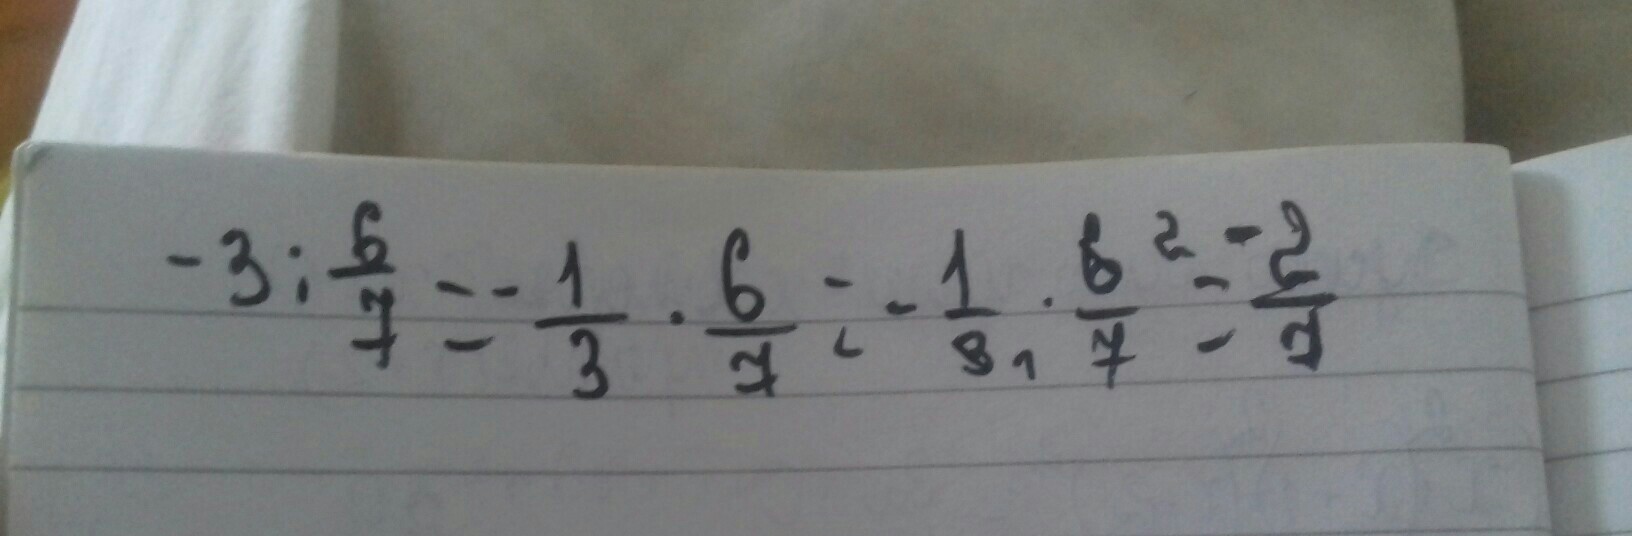 -3 : 6/7 = - 1/3 · 6/7 = - 1/3 1 · 6/7 2 = -2/7